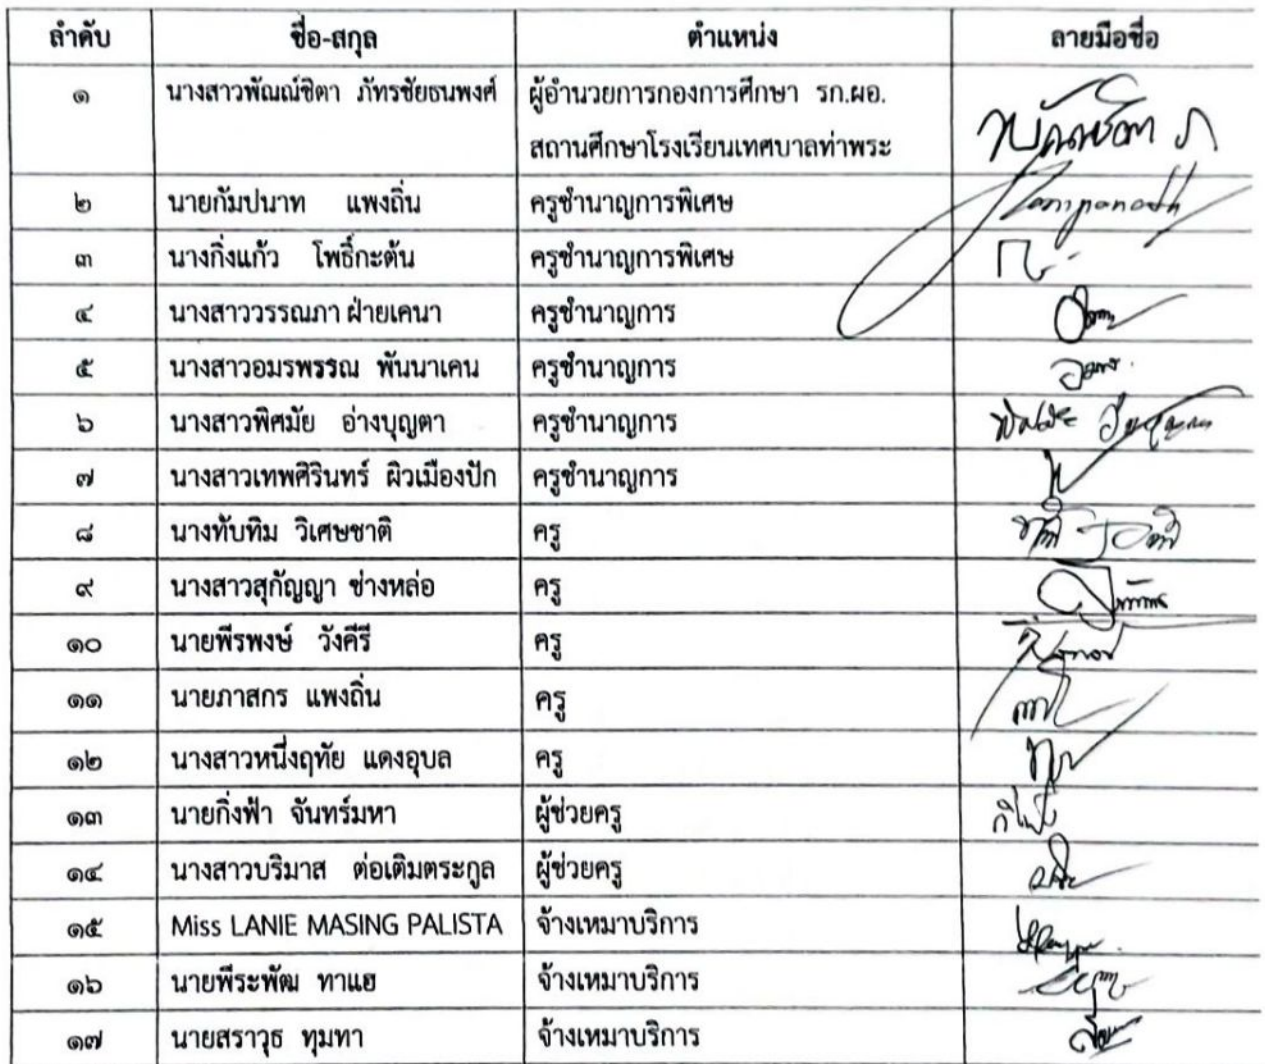 ลำดับ ชื่อ-สกุล ตำแหน่ง ลายมือชื่อ
๑ นางสาวพัณณ์ชิตา ภัทรชัยธนพงศ์ ผู้อำนวยการกองการศึกษา รก.ผอ.
สถานศึกษาโรงเรียนเทศบาลท่าพระ
๒ นายกัมปนาท แพงถิ่น ครูชำนาญการพิเศษ
๓ นางกิ่งแก้ว โพธิ์กะต้น ครูชำนาญการพิเศษ
๔ นางสาววรรณภา ฝ่ายเคนา ครูชำนาญการ
๕ นางสาวอมรพรรณ พันนาเคน ครูชำนาญการ
๖ นางสาวพิศมัย อ่างบุญตา ครูชำนาญการ
๗ นางสาวเทพศิรินทร์ ผิวเมืองปัก ครูชำนาญการ
๘ นางทับทิม วิเศษชาติ ครู
๙ นางสาวสุกัญญา ช่างหล่อ ครู
๑๐ นายพีรพงษ์ วังคีรี ครู
๑๑ นายภาสกร แพงถิ่น ครู
๑๒ นางสาวหนึ่งฤทัย แดงอุบล ครู
๑๓ นายกิ่งฟ้า จันทร์มหา ผู้ช่วยครู
๑๔ นางสาวบริมาส ต่อเติมตระกูล ผู้ช่วยครู
๑๕ Miss LANIE MASING PALISTA จ้างเหมาบริการ
๑๖ นายพีระพัฒ ทาแฮ จ้างเหมาบริการ
๑๗ นายสราวุธ ทุมทา จ้างเหมาบริการ